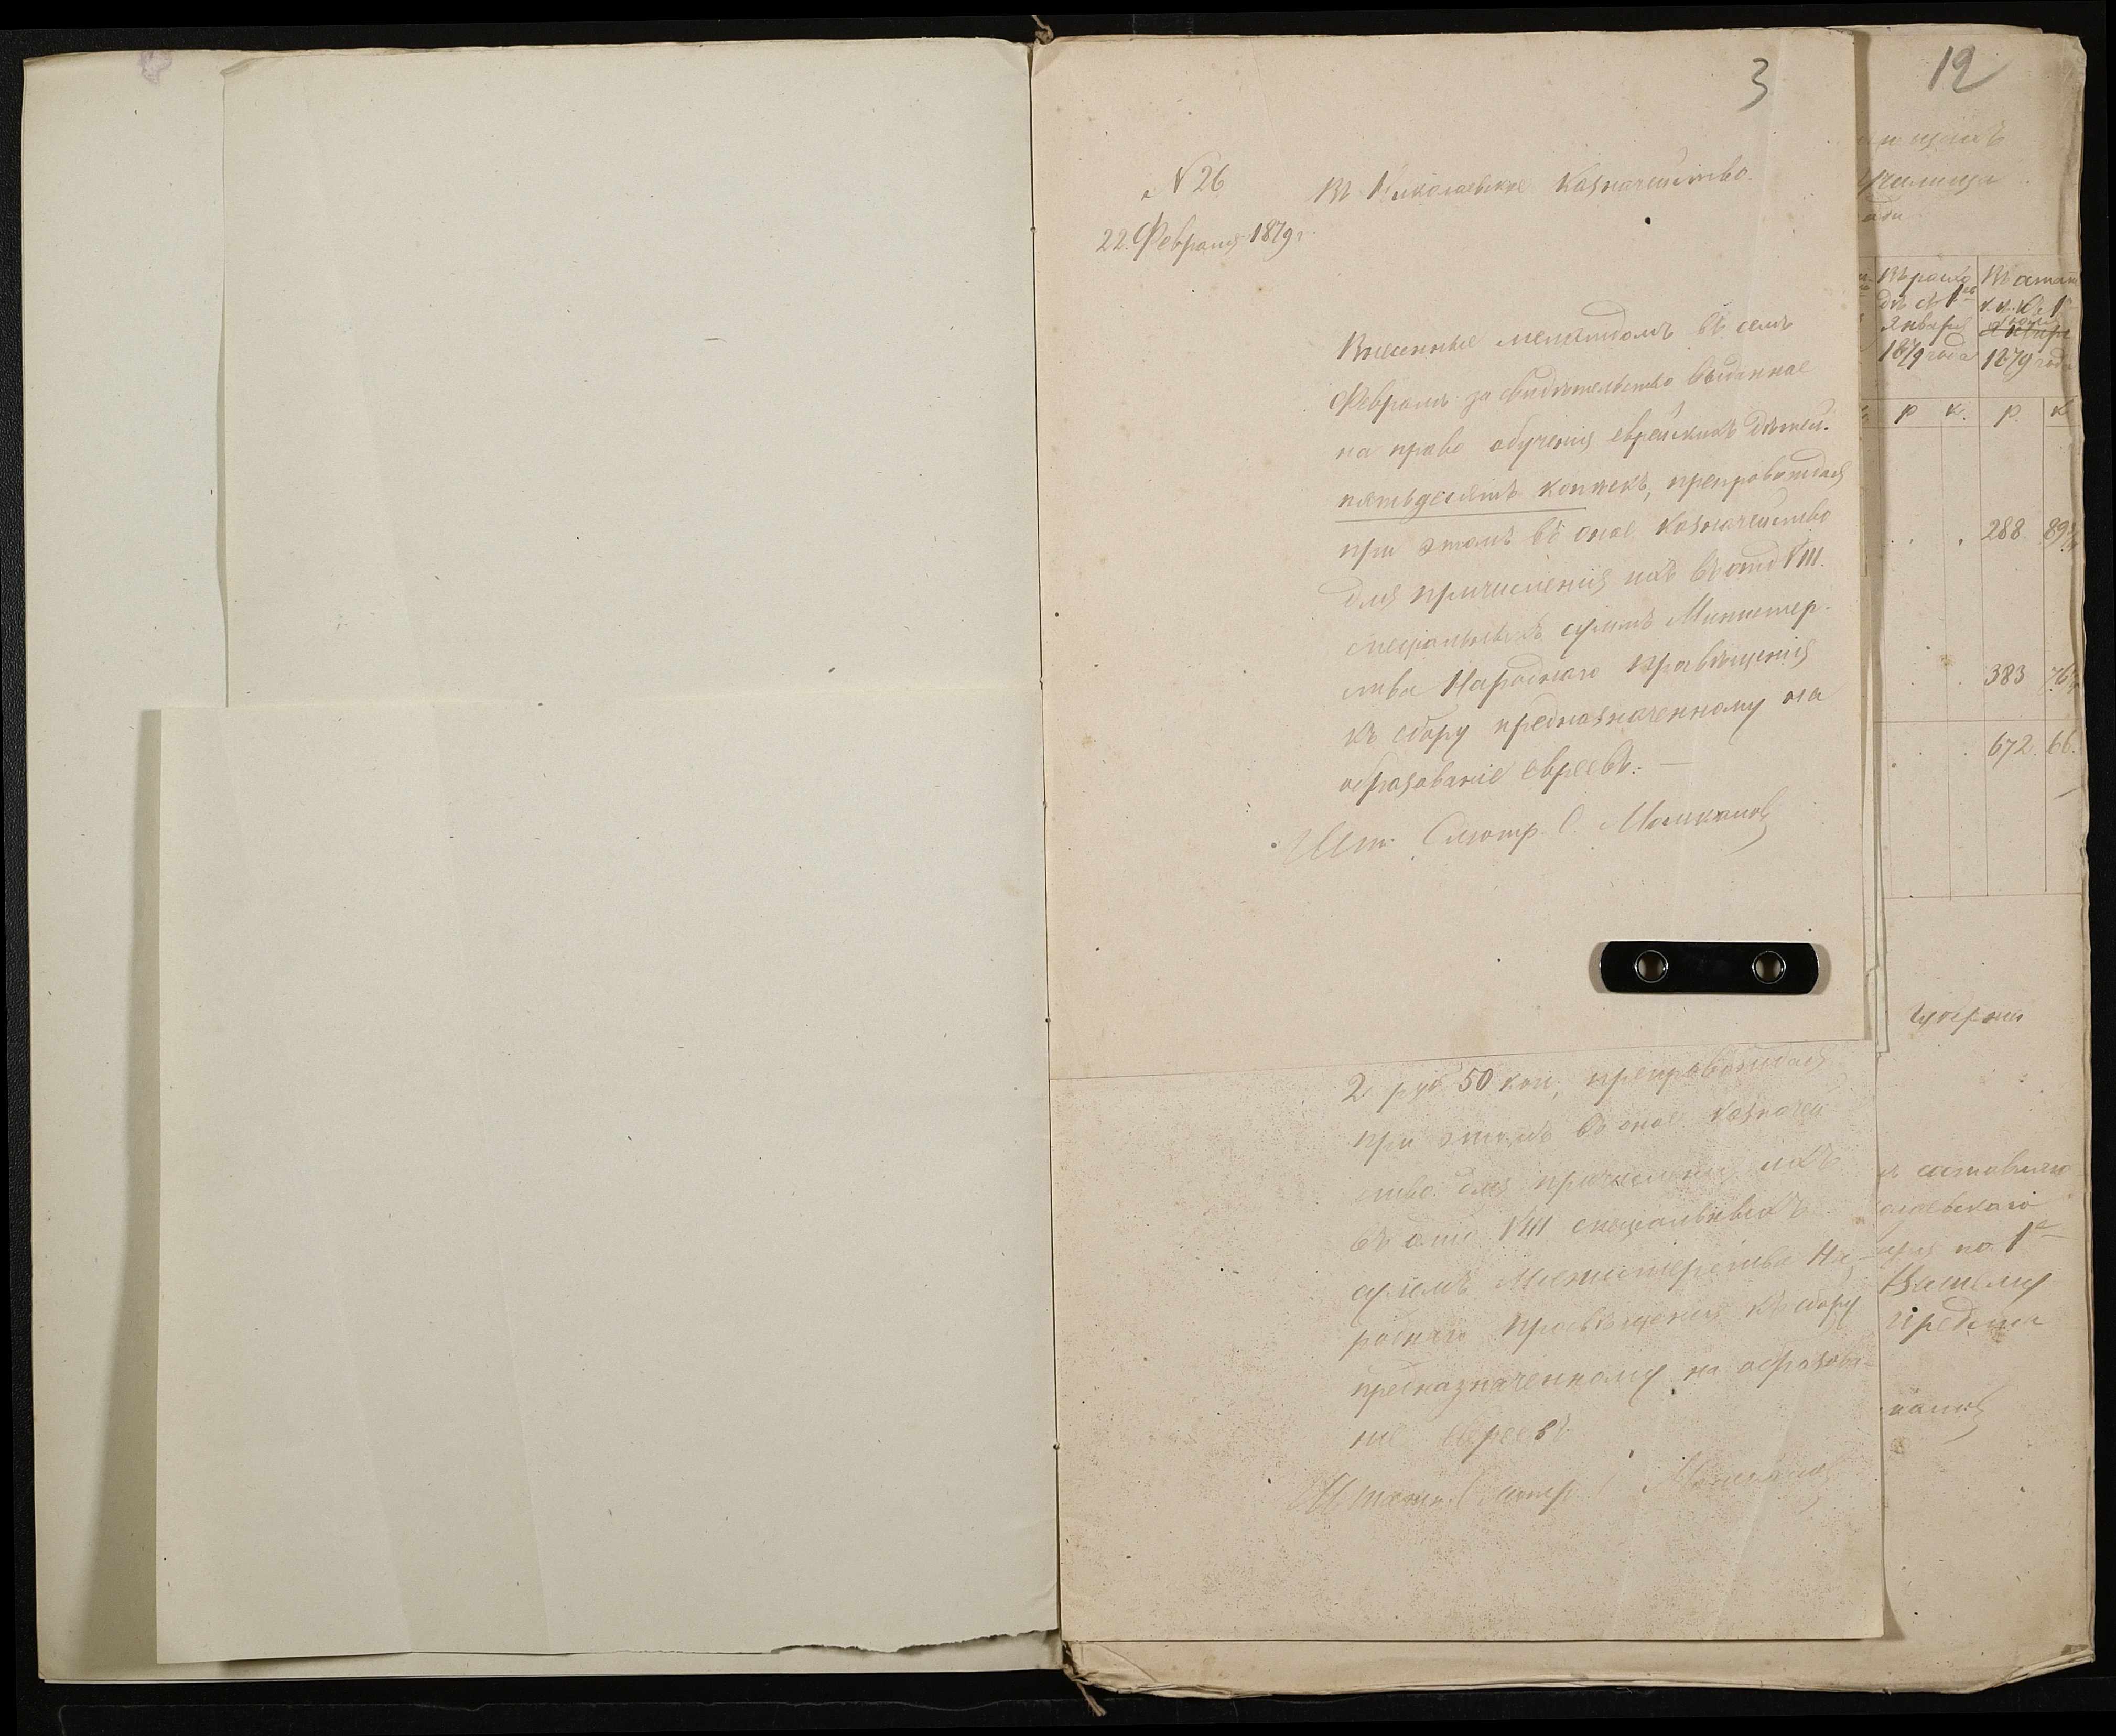 3
12
N 26
Въ Николаевское Казначейство.
22 Февраля 1879 г.
Внесенные меламдомъ въ семъ
Февралѣ за свидѣтельство выданное
на право обученія еврейскихъ дѣтей.
пятьдесятъ копѣекъ, препровождая
при этомъ въ оное Казначейство
для причисленія ихъ въ отд VIII.
спеціальныхъ суммъ Министер-
ства Народнаго Просвѣщенія
къ сбору предназначенному на
образованіе евреевъ.
Шт. Смотр. С.
2 руб 50 коп, препровождая
при этомъ въ оное Казначей
ство для причисленія ихъ
въ отд VIII спеціальныхъ
суммъ Министерства На-
роднаго Просвѣщенія къ сбору
предназначенному на образова-
ніе евреевъ
Штатн. Смотр
училища
Въ расхо
дѣ съ 1го
Января
1879 года
Въ остат
к. къ 1е
1879 года
р к. р. к
288 89
383 76
672. 66.
составлен
на 1е
Вашему